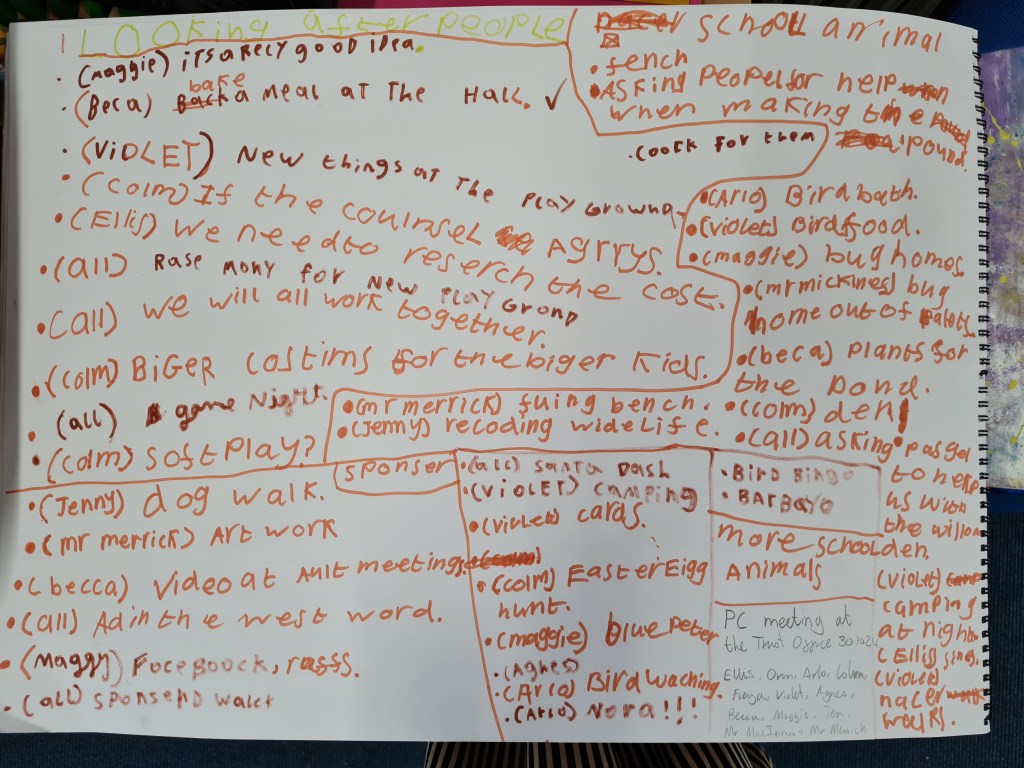 LOOKing after people
• (maggie) itsarely good idea.
bake
• (Beca) a meal at The Hall. ✓
• (VIOLET) New things at The Play Grownd
• (Colm) If the counsel Agrrys.
• (Ellis) We need to reserch the cost.
• (all) Rase mony for New Play Grond
• (all) we will all work together.
• (colm) BiGeR costims for the biger Kids.
• (all) game Night.
• (colm) soft Play?
school animal
• fench
• Asking Peopel for help
when making the
a pound.
• Look for them
• (Arlo) Bird bath.
• (violet) Birdfood.
• (maggie) bug homes.
• (mr mickines) bug
home out of palots.
• (beca) Plants for
the Pond.
• (colm) den
• (all) asking
to help
us with
the willow
den.
(violet)
camping
at night
(Ellis) sings.
(violet)
nacer
walks.
• (mr merrick) fuing bench.
• (Jenny) recoding wide Life.
sponser
• (Jenny) dog walk.
• (mr merrick) Art work
• (becca) video at Ault meetings
• (all) Ad in the west word.
• (Maggy) Foceboock, rasss.
• (all) sponsend walk
• (all) santa Dash
• (VIOLET) camping
• (violet) cards.
• (colm) Easter Eigg
hunt.
• (maggie) blue Peter
(Agnes)
• (Arlo) Bird waching.
• (Arlo) Nora!!!
• Bird Bingo
• BARBAYO
more school
Animals
PC meeting at
the Trust Office 30.10.24
Ellis, Orin, Arlo, Colm,
Freya, Violet, Agnes,
Becca, Maggie, Jen,
Mr MacInnes + Mr Merrick